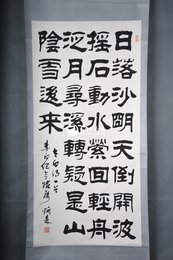 日落沙明天倒開波
搖石動水縈回輕舟
泛月尋溪轉疑是山
陰雪後來
太白詩一首